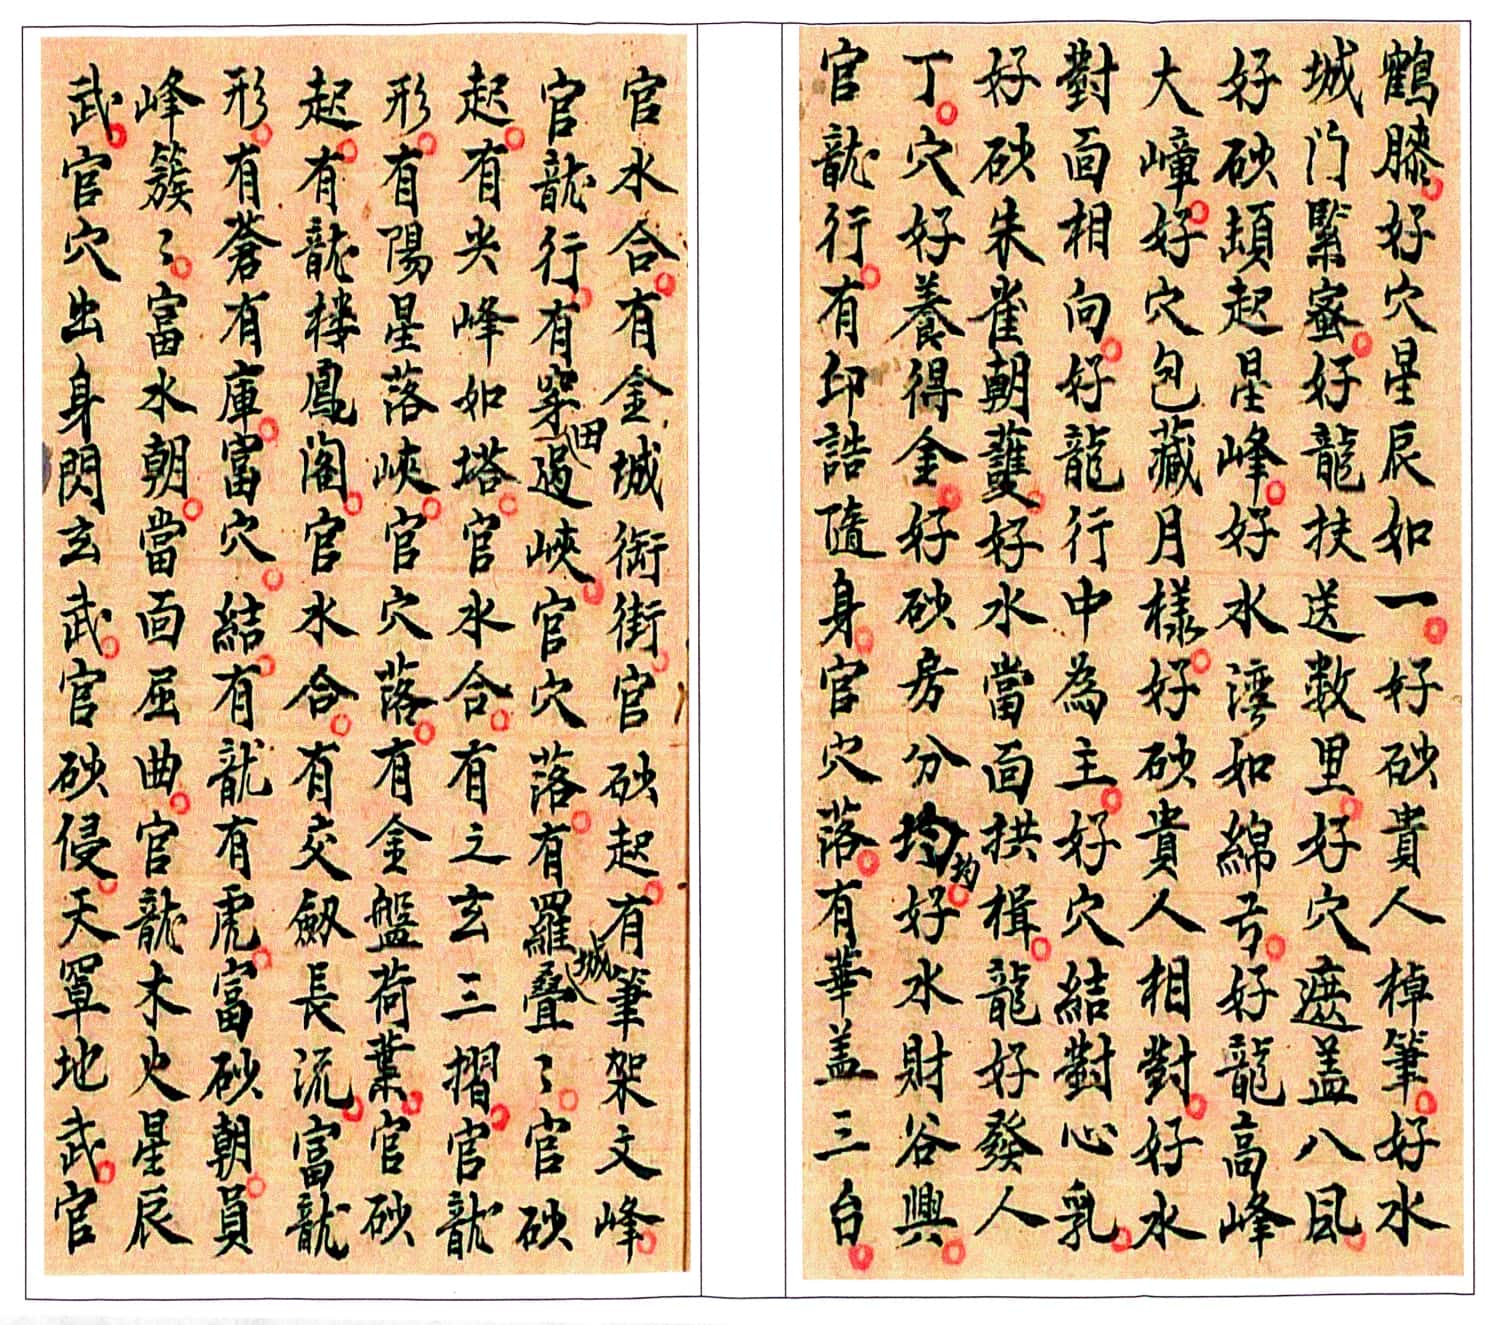 鶴膝好穴星辰如一好砂貴人棹筆好水
城门緊密好龍扶送数里好穴遮盖八風
好砂頓起星峰好水灣如綿弓好龍高峰
大嶂好穴包藏月樣好砂貴人相對好水
對面相向好龍行中為主好穴結對心乳
好砂朱雀朝䕶好水當面拱楫龍好發人
丁穴好養得金好砂房分均好水財谷興
官龍行有印誥隨身官穴落有華盖三台
官水合有金城衙街官砂起有筆架文峰
官龍行有穿田過峽官穴落有羅城疊〻官砂
起有尖峰如塔官水合有之玄三摺官龍
形有陽星落峽官穴落有金盤荷葉官砂
起有龍楼鳳阁官水合有交劔長流富龍
形有蒼有庫富穴結有龍有虎富砂朝員
峰簇〻富水朝當面屈曲官龍木火星辰
武官穴出身閃玄武官砂侵天罩地武官